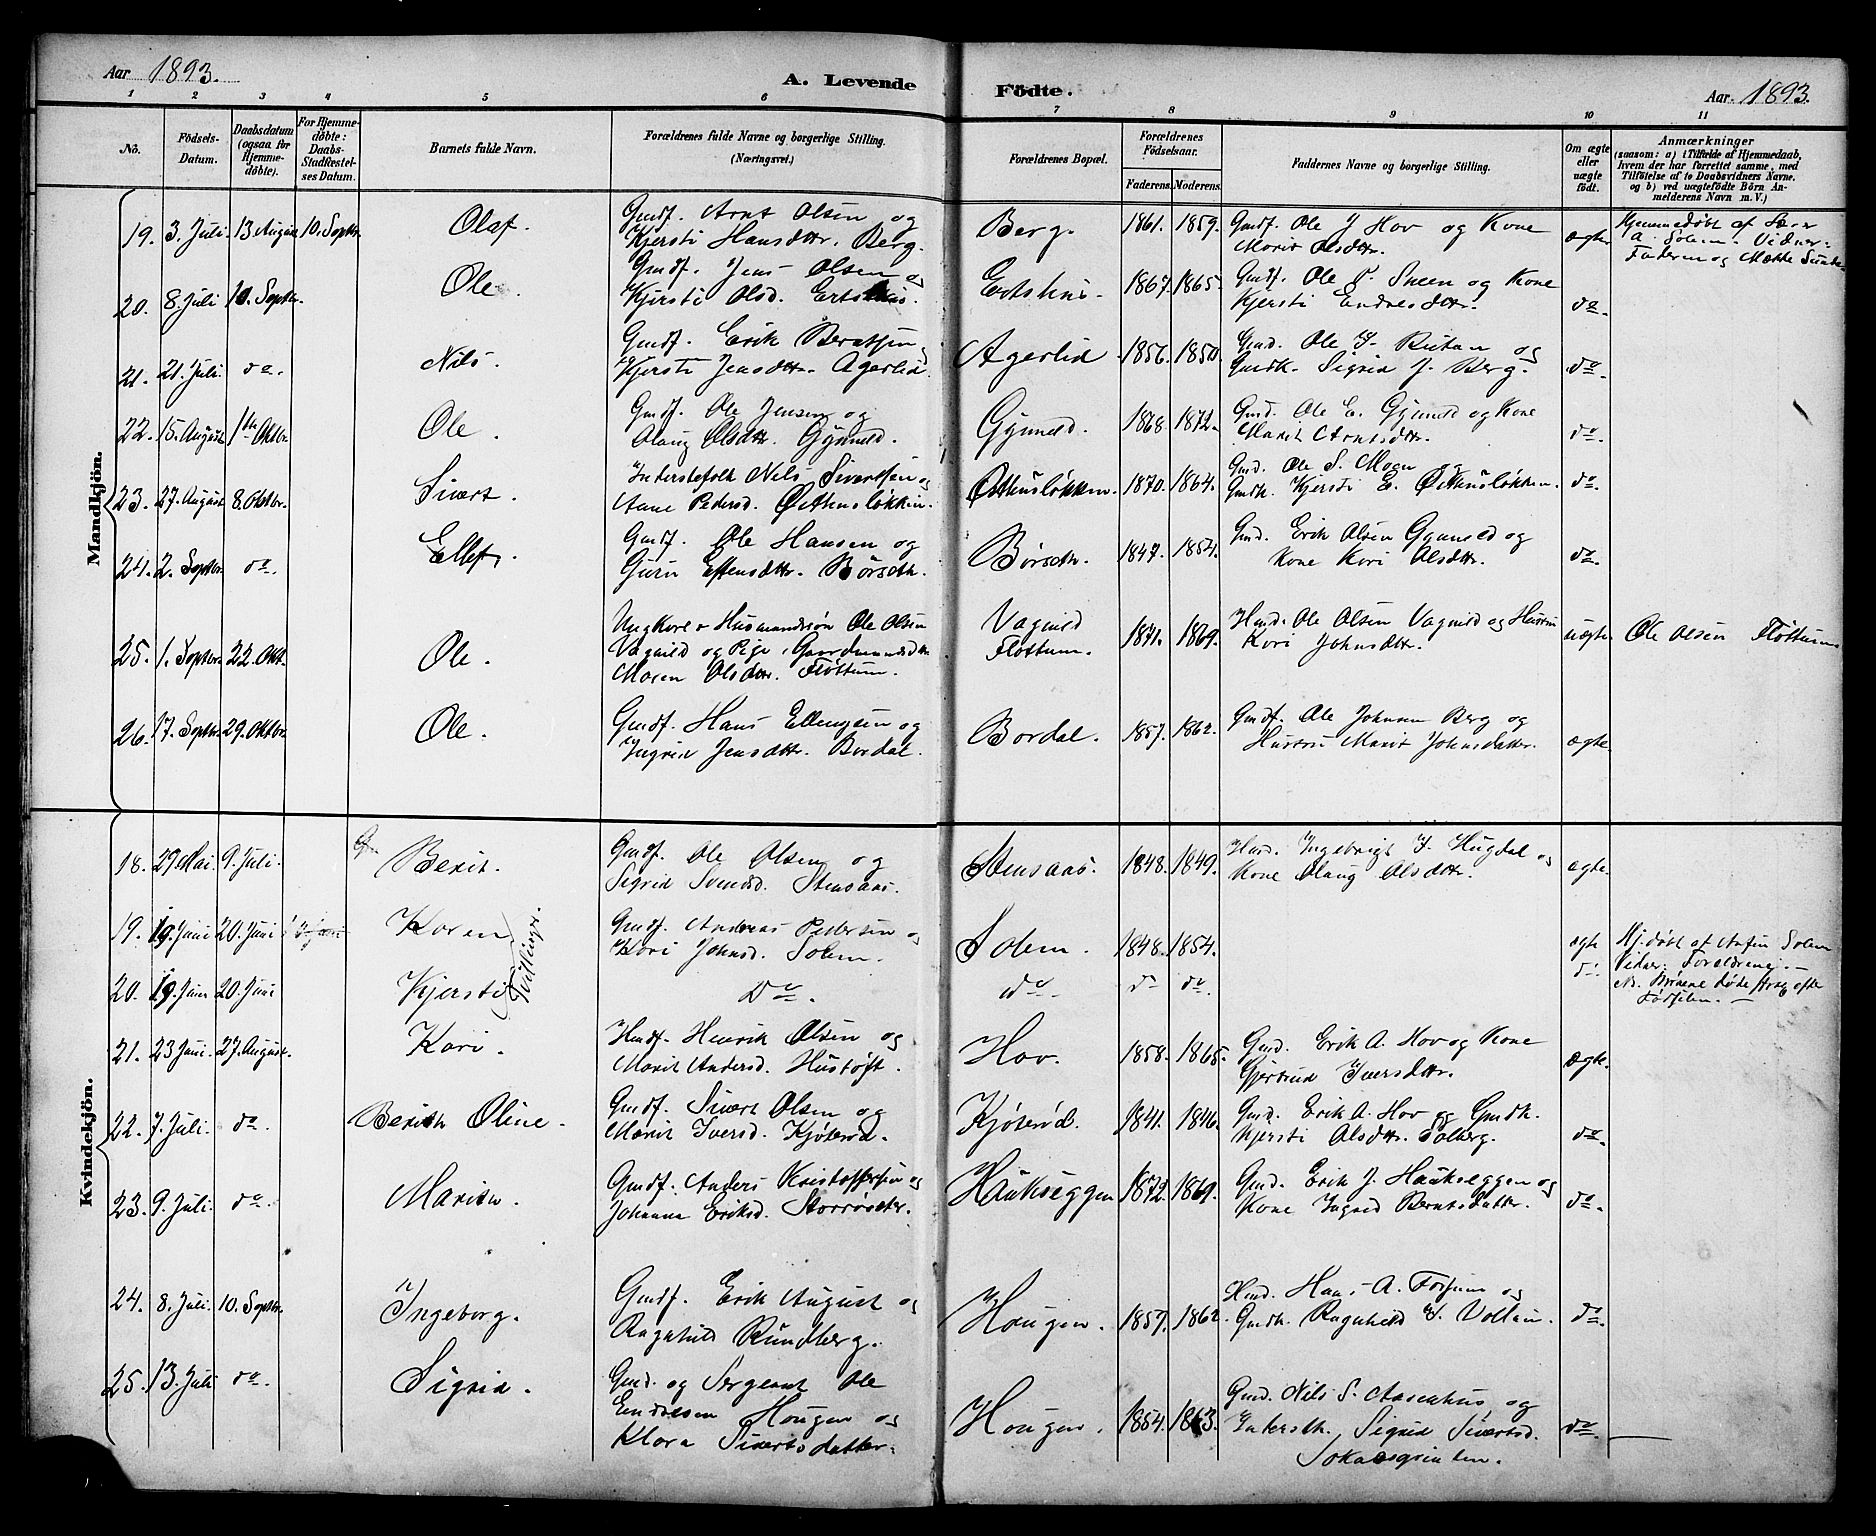 Aar 1893.
A. Levende
Födte.
Aar. 1893.
1 2 3 4 5 6 7 8 9 10 11
No. Födsels-Datum. Daabsdatum (ogsaa för Hjemme-döbte). For Hjemme-döbte: Daabs-Stadfæstelses Datum. Barnets fulde Navn. Forældrenes fulde Navne og borgerlige Stilling. (Næringsvei.) Forældrenes Bopæl. Forældrenes Födselsaar. Faderens. Moderens. Faddernes Navne og borgerlige Stilling. Om ægte eller uægte födt. Anmærkninger (saasom: a) i Tilfælde af Hjemmedaab, hvem der har forrettet samme, med Tilföielse af to Daabsvidners Navne, og b) ved uægtefödte Börn Anmelderens Navn m. V.)
Mandkjön.
19. 3. Juli 13 August 10. Septbr. Olaf. Gmdf. Arnt Olsen og
Kjersti Hansdttr. Berg. Berg. 1861. 1859. Gmdf. Ole J Hov og Kone
Marit Olsdttr. ægte Hjemmedøbt af Lærer
A. Solem. Vidner:
Faderen og
20. 8. Juli 10. Septbr. Ole. Gmdf. Jens Olsen og
Kjersti Olsd. Ertshus. Ertshus. 1867. 1865. Gmdf. Ole P. Sneen og Kone
Kjersti Endresdttr. do.
21. 21. Juli do. Nils. Gmdf. Erik Berntsen
Kjersti Jensdttr. Agerlid. Agerlid 1856. 1850. Gmd. Ole Bitan og
Gmdk. Sigrid J. Berg. do.
22. 15. August 1ste Oktbr. Ole. Gmdf. Ole Jensen og
Olaug Olsdttr. Gynnild. Gynnild. 1868. 1872. Gmd. Ole E. Gynnild og Kone
Marit Arntsdttr. do.
23. 27. August 8. Oktbr. Sivert. Inderstefolk Nils Sivertsen og
Anne Pedersd. Østhusløkken. Østhusløkken. 1870. 1864. Gmd. Ole S. Moen og
Gmdk. Kjersti E. Østhusløkken. do.
24. 2. Septbr. do. Ellef. Gmdf. Ole Hansen og
Guru Estensdttr. Børseth. Børseth. 1847. 1854. Gmd. Erik Olsen Gynnild og
Kone Kari Olsdttr. do.
25. 1. Septbr. 22. Okt. Ole. Ungkarl Husmandssøn Ole Olsen
Vagnild og Pige, Gaardmandsdtr
Maren Olsdttr. Fløttum. Vagnild
Fløttum. 1871. 1869. Hmd. Ole Olsen Vagnild og Hustru
Kari Johnsdttr. uægte Ole Olsen Fløttum
26. 17. Septbr. 29. Oktbr. Ole. Gmdf. Hans Ellingsen og
Ingrid Jensdttr. Bordal. Bordal. 1857. 1862. Gmdf. Ole Johnsen Berg og
Hustru Marit Johnsdatter. ægte
Kvindekjön.
18. 29 Mai. 9. Juli. Berit. Gmdf. Ole Olsen og
Sigrid Svendsd. Stensaas. Stensaas. 1848. 1849. Hmd. Ingebrigt Hugdal og
Kone Olaug Olsdttr. ægte.
19. 19 Juni 20. Juni Karen Tvillinger. Gmdf. Andreas Pedersen og
Kari Johnsd. Solem. Solem. 1848. 1854. ægte Hj. døbt af Anfin Solem
Vidner: Forældrene.
20. 19. Juni 20. Juni Kjersti Do. do. do do. do. NB. Børnene døde strax efter
Fødselen.
21. 23 Juni. 27. August. Kari. Hmdf. Henrik Olsen og
Marit Andersd. Hustoft. Hov. 1858. 1865. Gmd. Erik A. Hov og Kone
Gjertrud Iversdttr. ægte.
22. 7. Juli. do. Berith Oline. Gmdf. Sivert Olsen og
Marit Iversd. Kjøterød. Kjøterød. 1841. 1846. Gmd. Erik A. Hov og Gmdk.
Kjersti Olsdttr. Solberg. do.
23. 9. Juli. do. Marien. Gmdf. Anders Kristoffersen og
Johanna Eriksd. Storrøseter. Haukseggen 1872. 1869. Gmd. Erik J. Haukseggen og
Kone Ingrid Berntsdatter. do.
24. 8. Juli. 10. Septbr. Ingeborg. Gmdf. Erik August og
Ragnhild Rundberg. Hougen. 1857. 1862. Hmd. Hans A. Forsum og
Gmdk. Ragnhild Vollan. do.
25. 13. Juli do. Sigrid. Gmd. og Sergeant Ole
Endresen Hougen og
Klara Sivertsdatter. Hougen. 1854. 1863. Gmd. Nils S. Aasenhus og
Inderstk. Sigrid Sivertsd.
do.